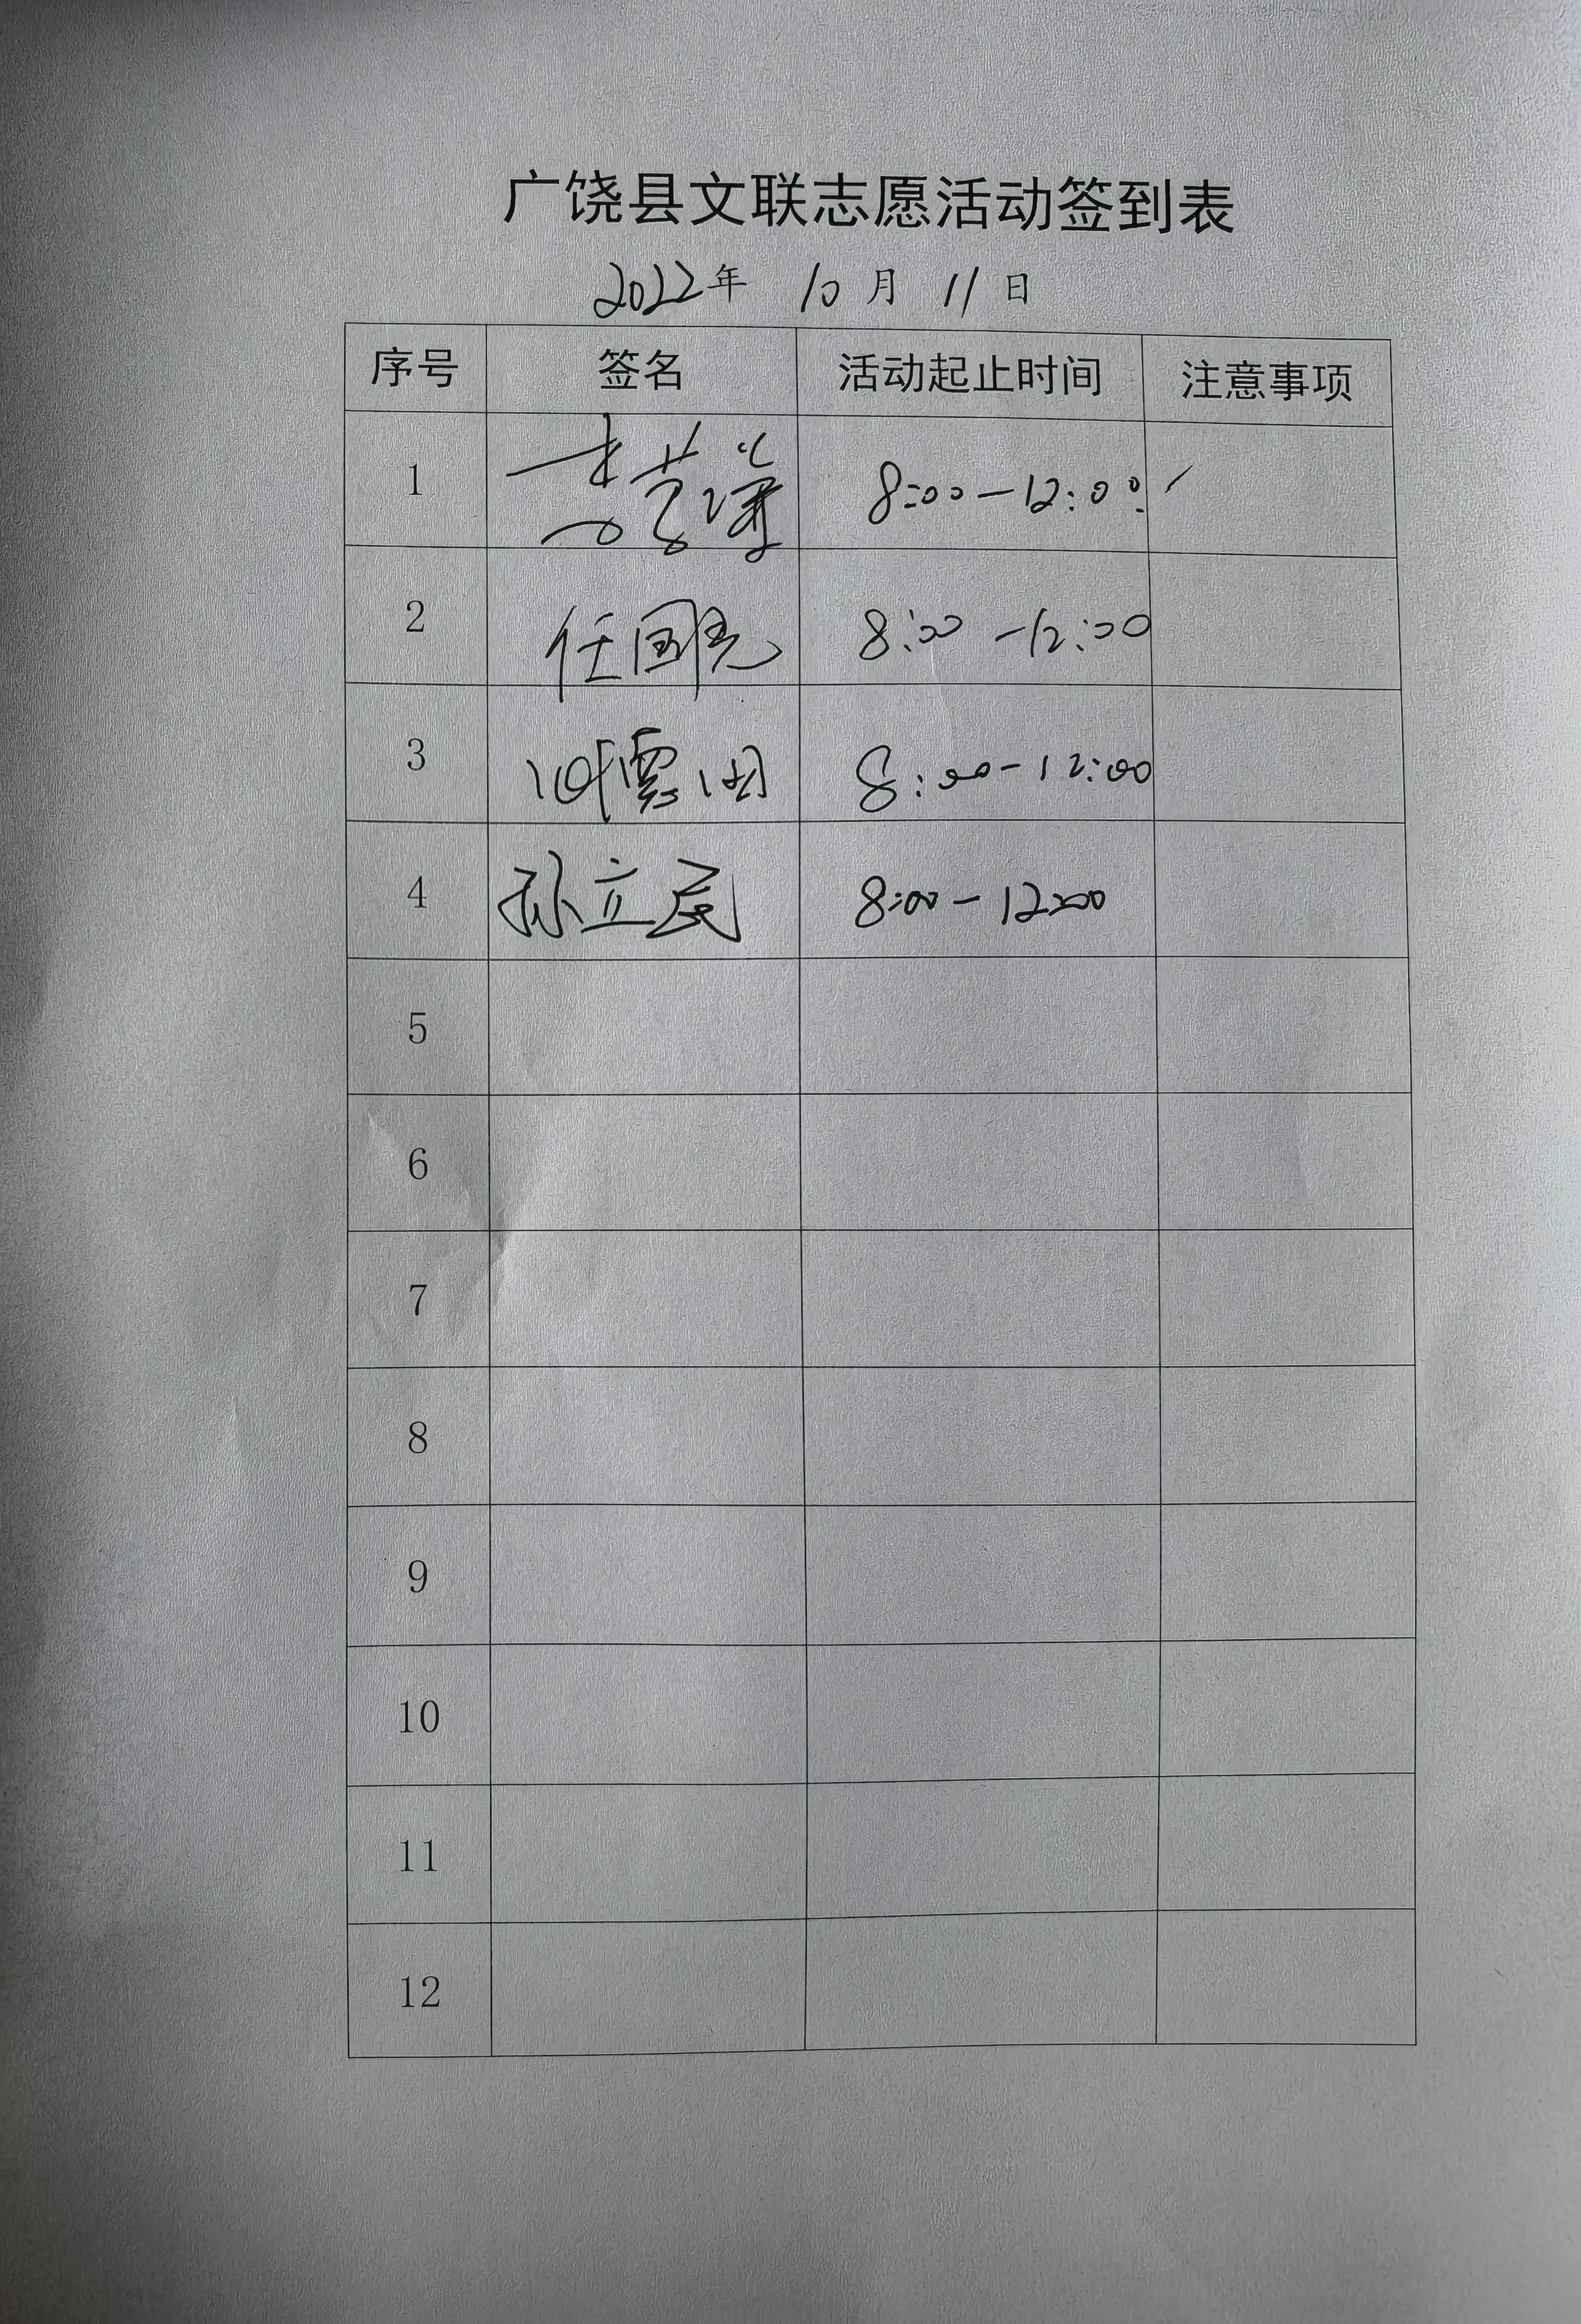 广饶县文联志愿活动签到表
2022年 10月 11日
序号 签名 活动起止时间 注意事项
1 8:00-12:00
2 任国亮 8:00-12:00
3 8:00-12:00
4 孙立民 8:00-12:00
5
6
7
8
9
10
11
12